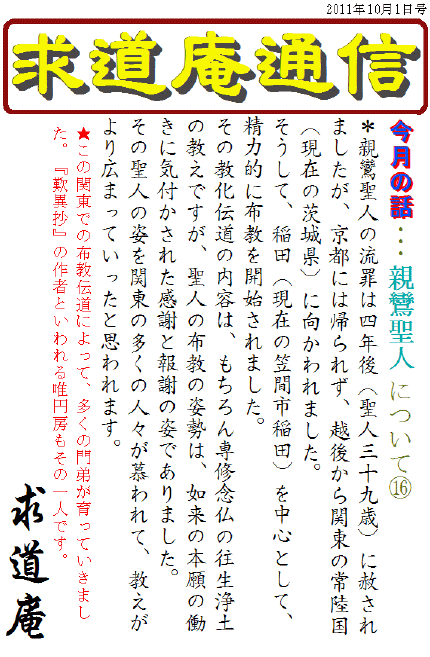 2011年10月1日号
求道庵通信
今月の話…親鸞聖人について⑯
＊親鸞聖人の流罪は四年後（聖人三十九歳）に赦され
ましたが、京都には帰られず、越後から関東の常陸国
（現在の茨城県）に向かわれました。
そうして、稲田（現在の笠間市稲田）を中心として、
精力的に布教を開始されました。
その教化伝道の内容は、もちろん専修念仏の往生浄土
の教えですが、聖人の布教の姿勢は、如来の本願の働
きに気付かされた感謝と報謝の姿でありました。
その聖人の姿を関東の多くの人々が慕われて、教えが
より広まっていったと思われます。
★この関東での布教伝道によって、多くの門弟が育っていきまし
た。『歎異抄』の作者といわれる唯円房もその一人です。
求道庵